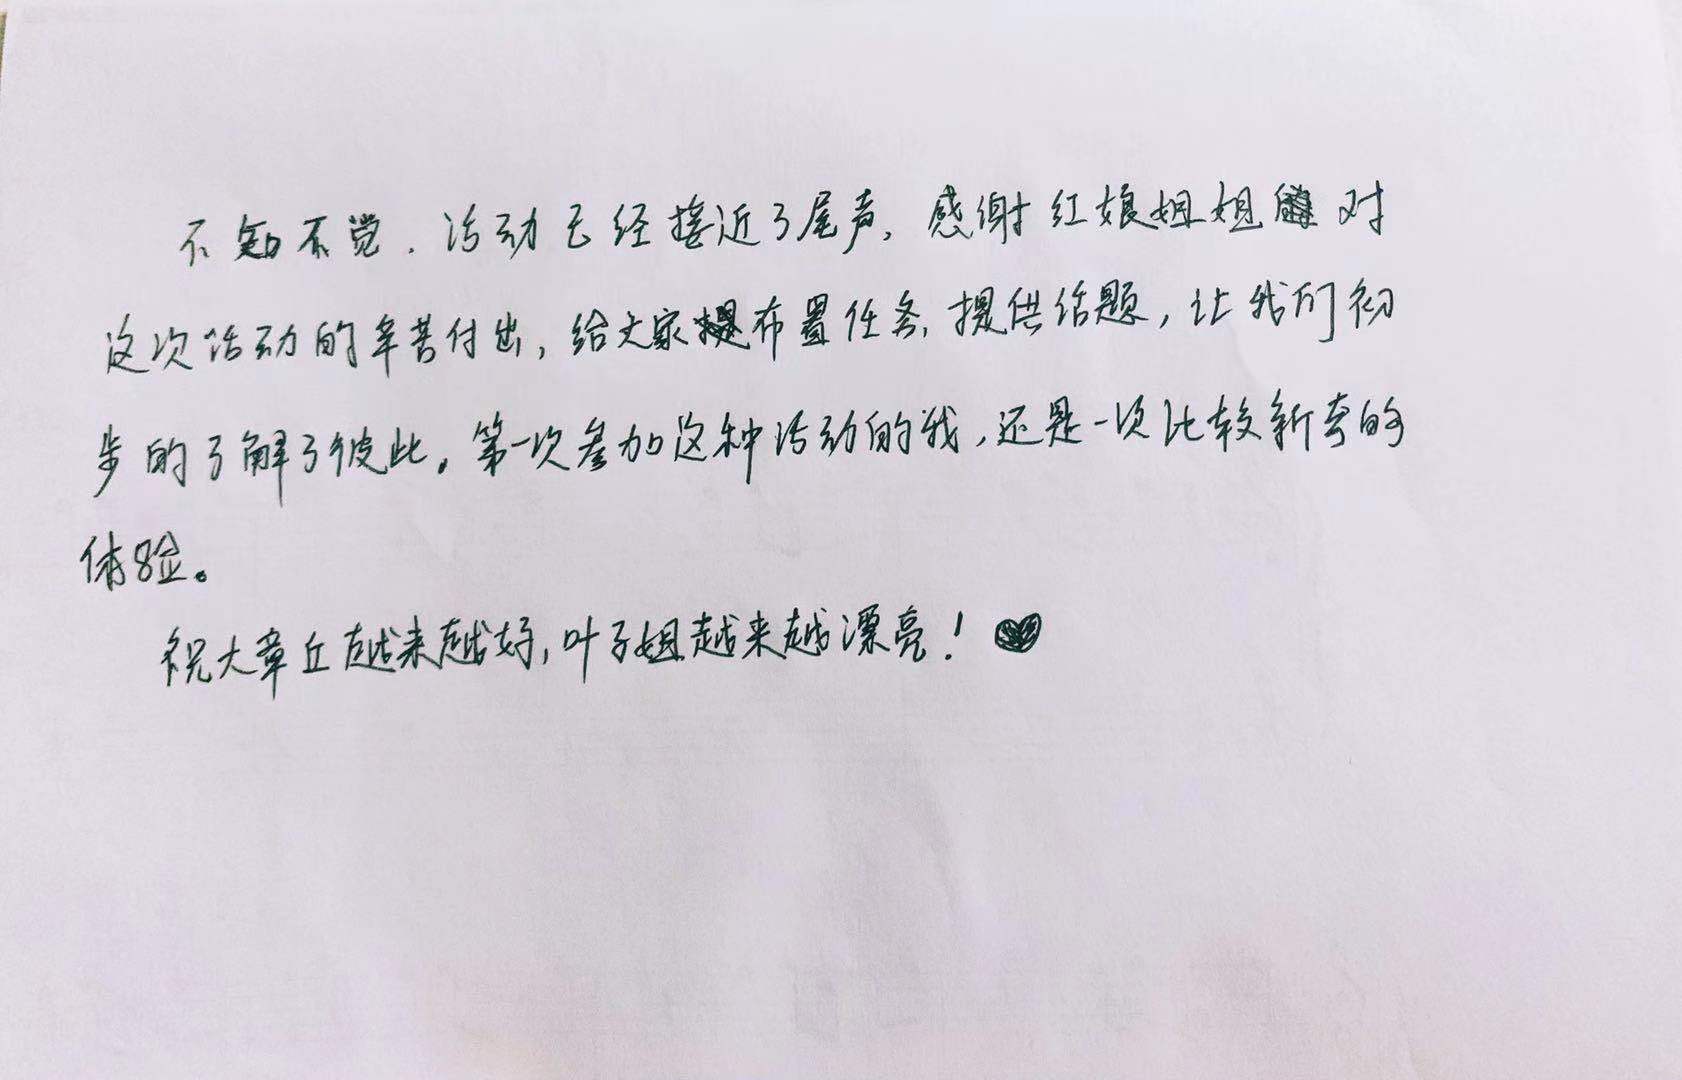 不知不觉，活动已经接近了尾声，感谢红娘姐姐对
这次活动的辛苦付出，给大家布置任务，提供话题，让我们初
步的了解了彼此。第一次参加这种活动的我，还是一次比较新奇的
体验。
祝大章丘越来越好，叶子姐越来越漂亮！